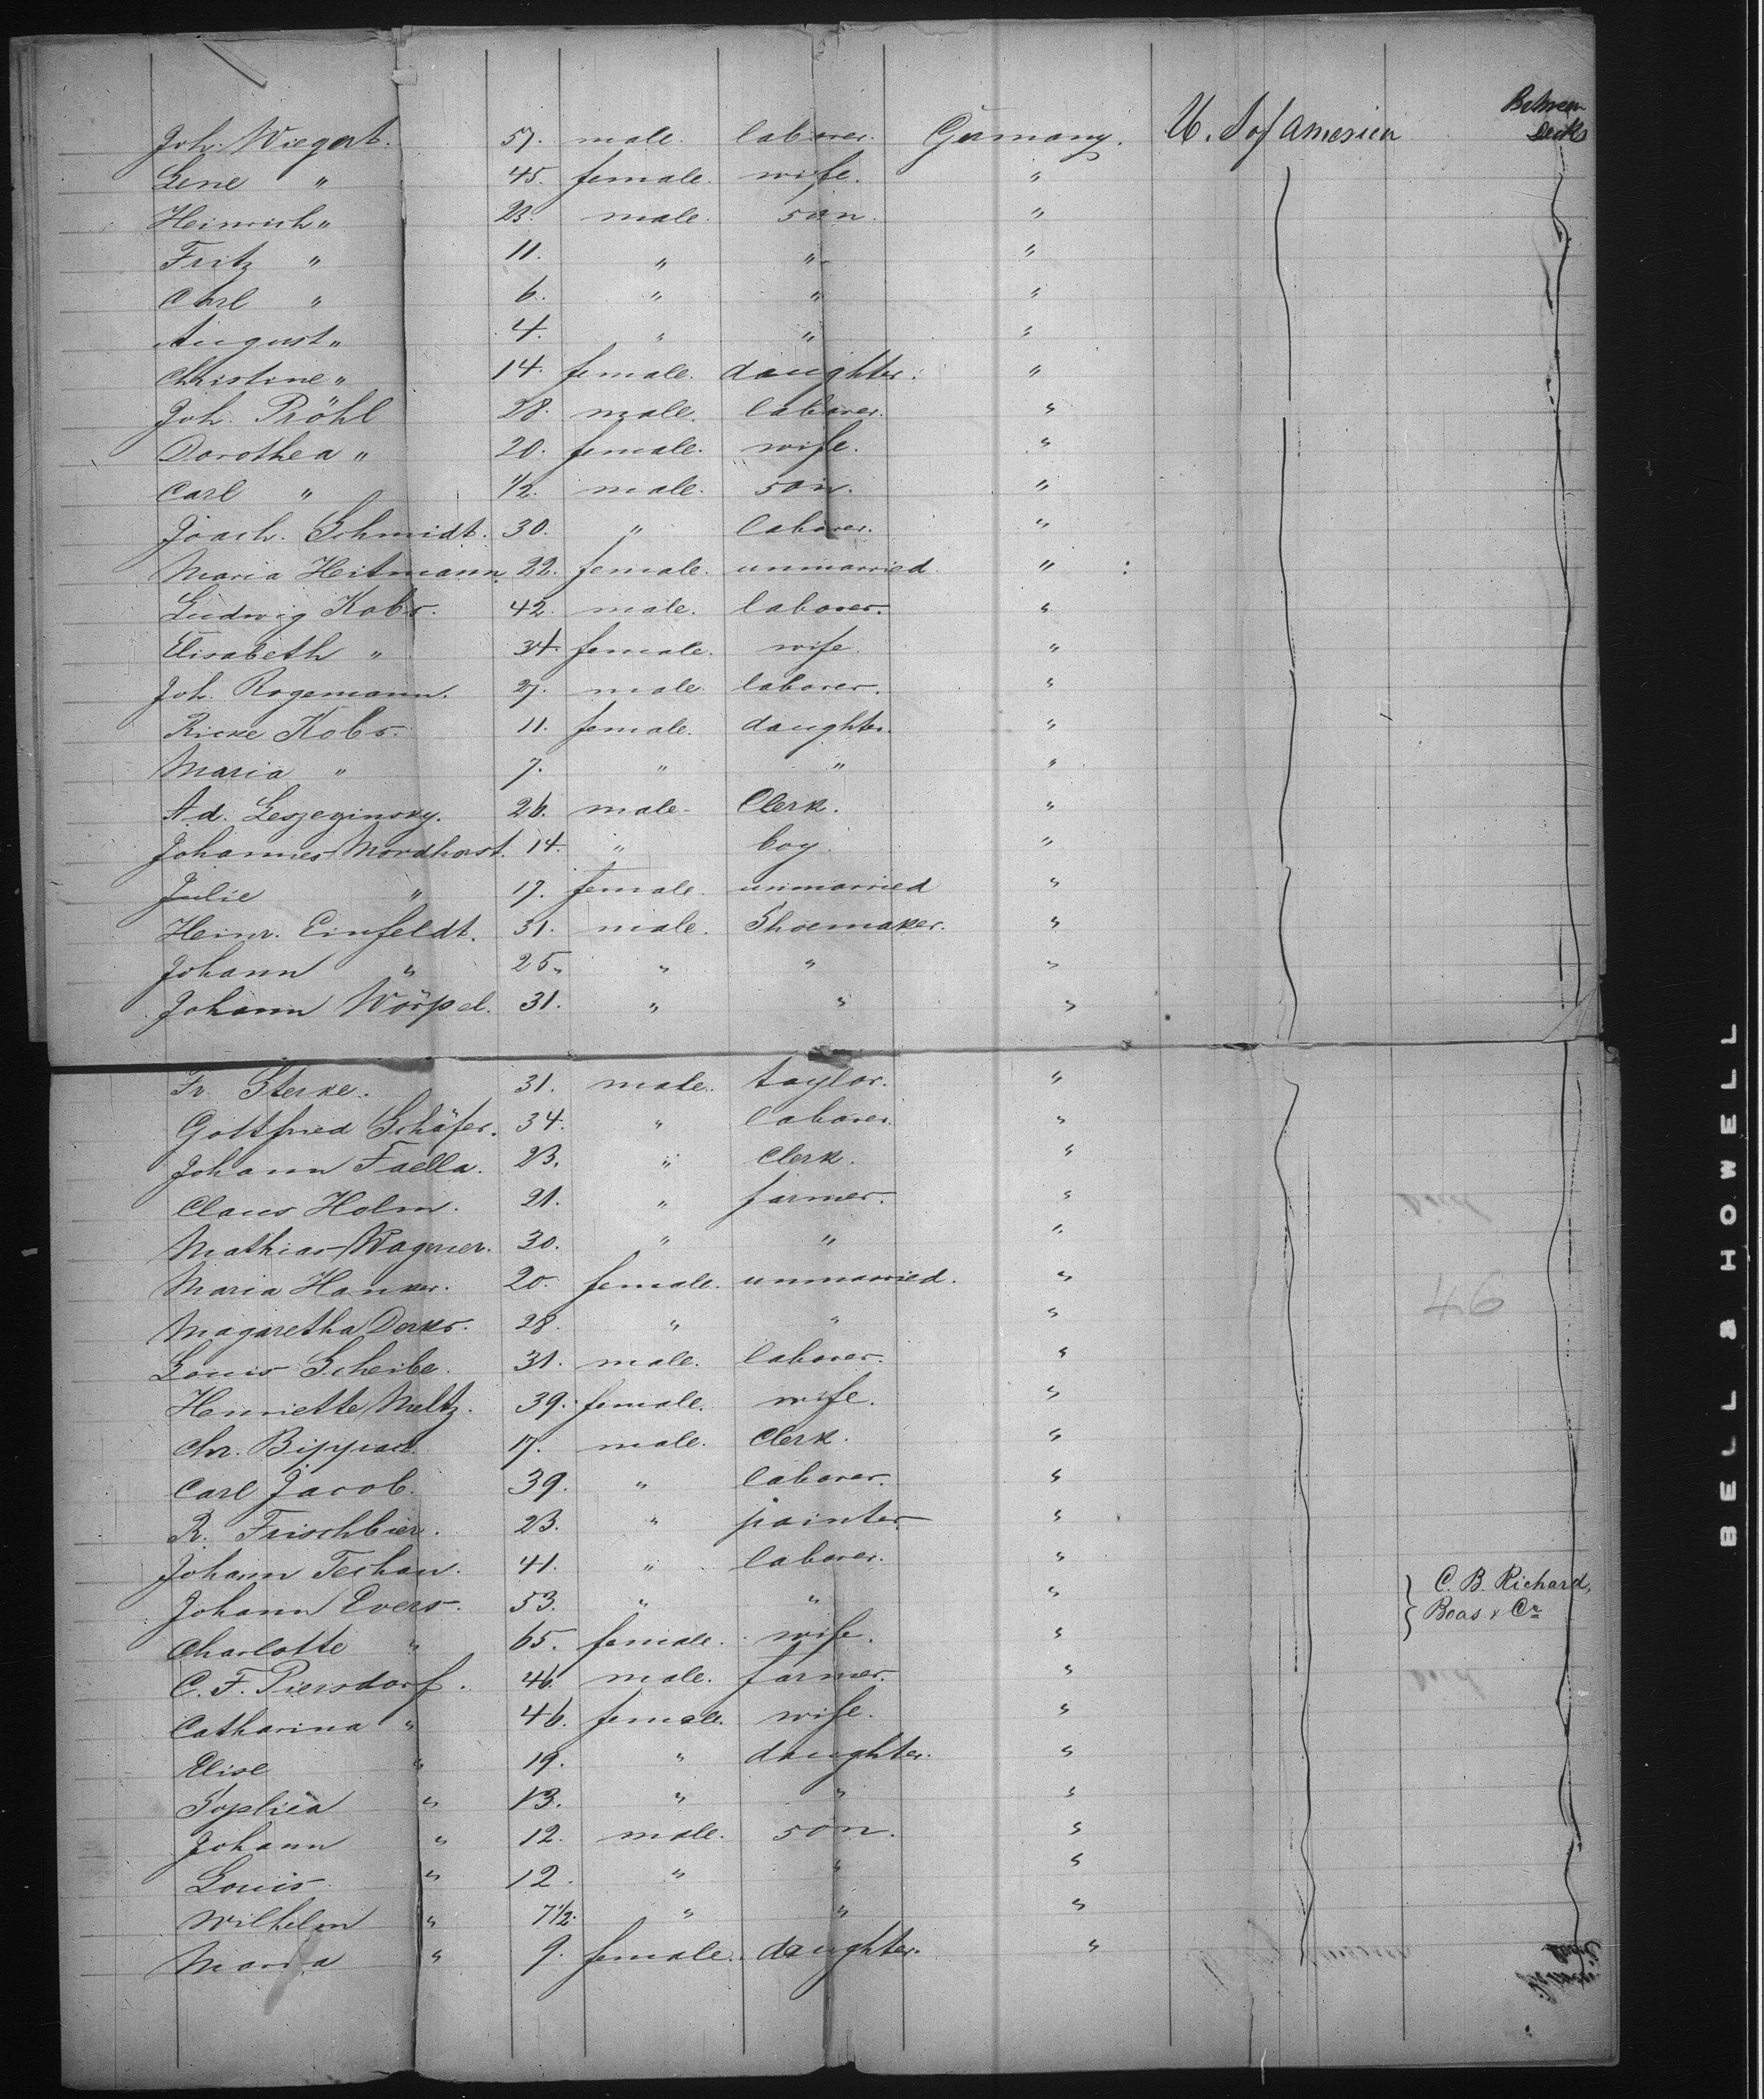 Between
Decks
Joh. Wiegert. 57. male. laborer. Germany. U. S of America
Lene " 45. female. wife. "
Heinrich " 23. male. son. "
Fritz " 11. " " "
Carl " 6. " " "
August " 4. " " "
Christine " 14. female. daughter. "
Joh. Pröhl 28. male. laborer. "
Dorothea " 20. female. wife. "
Carl " 1/2. male. son. "
Joach. Schmidt. 30. " laborer. "
Maria Heitmann 22. female. unmarried. "
Ludwig Kobs. 42. male. laborer. "
Elisabeth " 34. female. wife. "
Joh. Rogemann. 27. male. laborer. "
Ricke Kobs. 11. female. daughter. "
Maria " 7. " " "
Ad. 26. male. Clerk. "
Johannes Mordhorst. 14. " boy. "
Julie " 17. female. unmarried "
Heinr. Einfeldt. 31. male. Shoemaker. "
Johann " 25. " " "
Johann Wörpel. 31. " " "
Fr. Sterke. 31. male. taylor. "
Gottfried Schäfer. 34. " laborer. "
Johann Faella. 23. " Clerk. "
Claus Holm. 21. " farmer. "
Mathias Wagener. 30. " " "
Maria Hanker. 20. female. unmarried. "
Magaretha Derks. 28. " " "
Louis Scheibe. 31. male. laborer. "
Henriette Meltz. 39. female. wife. "
Chr. 17. male. Clerk. "
Carl Jacob. 39. " laborer. "
R. Frischbier. 23. " painter. "
Johann Teshau. 41. " laborer. "
Johann Evers. 53. " " " } C. B. Richard,
Boas & Co
Charlotte " 65. female. wife. "
C. F. Piersdorf. 46. male. farmer. "
Catharina " 46. female. wife. "
Elise " 19. " daughter. "
Sophia " 13. " " "
Johann " 12. male. son. "
Louis " 12. " " "
Wilhelm " 7 1/2. " " "
Maria " 9. female. daughter. "
BELL & HOWELL